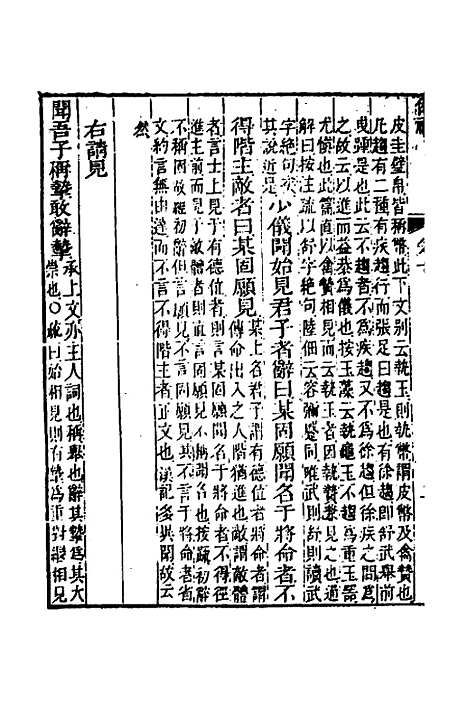 皮圭璧帛皆稱幣此下文別云執玉則執幣謂皮幣及禽贄也
凡趨有二種有疾趨行而張足曰趨是也有徐趨卽武舉前
曳踵是也此云不趨者不爲疾趨又不爲徐趨但徐疾之間爲
之故云以進而益恭爲儀也按玉藻云執龜玉不趨爲重玉器
尤愼也此篇直云以禽贄相見而云至君所因執贄蒙見之也通
解曰按註疏以舒字絕句陸佃云容彌蹙同唯武則舒則讀武
字絕句
其說近是少儀聞始見君子者辭曰某固願聞名于將命者不
得階主敵者曰某固願見
某上名君子謂有德位者將命者謂
傳命出入之人階猶進也敵謂敵體
者言士上見于有德位者則言某固願聞名于將命者不得徑
進主前見于敵體者則直言固願見不稱謝名也按疏初辭
不稱固故經初辭但云某願見不云固願見其不言于將命者
文約言無由達而不云不得階主者正文也漢記多異聞故云
然
右請見
聞吾子稱摯敢辭摯
承上文亦主人詞也稱舉也辭其摯爲其大
崇也○疏曰始相見則有摯爲重對嚮相見